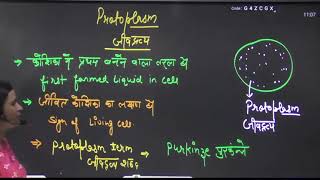 Code: G4ZCGX
11:07
Protoplasm
जीवद्रव्य
→ कोशिका में प्रथम बनने वाला तरल है
first formed liquid in cell
→ जीवित कोशिका का लक्षण है
Sign of Living cell
→ Protoplasm term → Purkinje पुरकिन्जे
जीवद्रव्य शब्द
Protoplasm
जीवद्रव्य